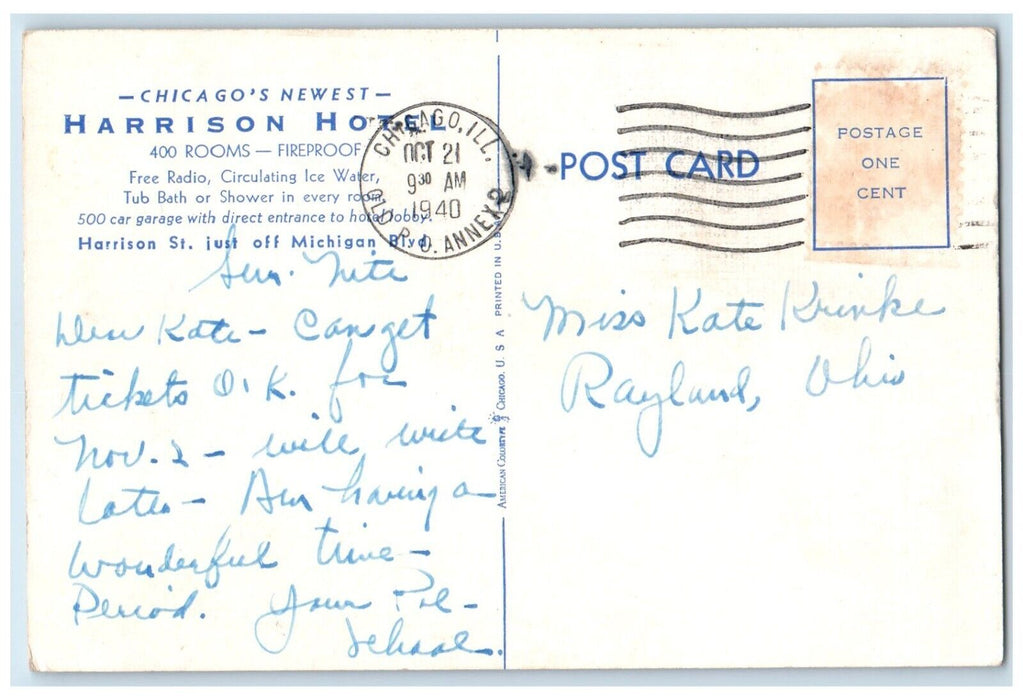 —CHICAGO'S NEWEST—
HARRISON HOTEL
400 ROOMS — FIREPROOF
Free Radio, Circulating Ice Water,
Tub Bath or Shower in every room
500 car garage with direct entrance to hotel lobby.
Harrison St. just off Michigan Blvd.
CHICAGO, ILL.
OCT 21
9 30 AM
1940
OLD P.O. ANNEX 2
POST CARD
POSTAGE
ONE
CENT
Sun. Nite
Dear Kate – Can get
tickets O.K. for
Nov. 2 – will write
later – Am having a
wonderful time –
Period. Your Pal –
AMERICAN COLORTYPE CHICAGO, U. S. A
PRINTED IN U.S.A.
Miss Kate Krinke
Rayland, Ohio